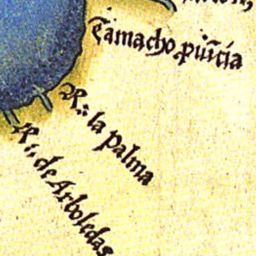 Tamacho puīcia
R: la palma
R: de Arboledas